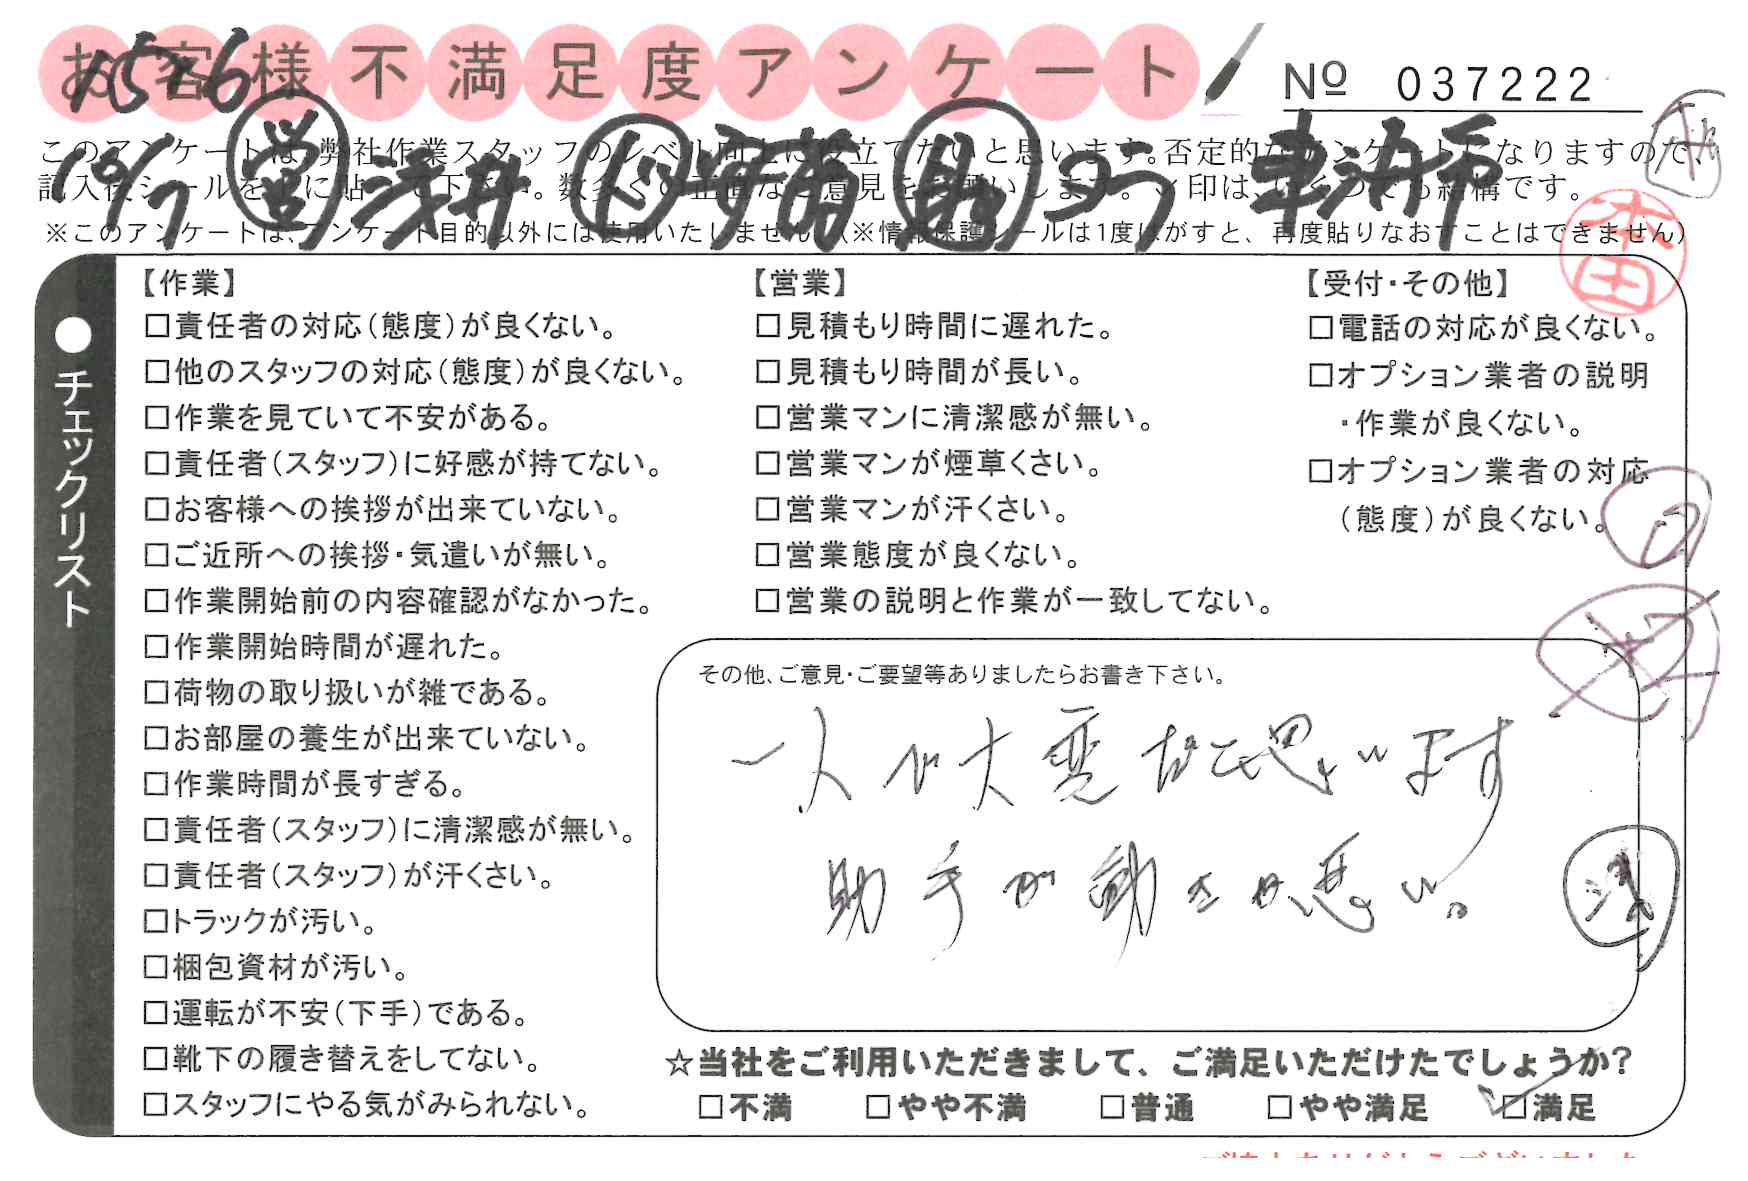 お客様不満足度アンケート
1576
№ 037222
このアンケートは、弊社作業スタッフのレベル向上に役立てたいと思います。否定的なアンケートになりますので、
記入後シールを上に貼って下さい。数多くの正直なご意見をお願いします。レ印は、いくつでも結構です。
10/7 営 浅井
※このアンケートは、アンケート目的以外には使用いたしません。(※情報保護シールは1度はがすと、再度貼りなおすことはできません)
本田
●チェックリスト
【作業】
□責任者の対応(態度)が良くない。
□他のスタッフの対応(態度)が良くない。
□作業を見ていて不安がある。
□責任者(スタッフ)に好感が持てない。
□お客様への挨拶が出来ていない。
□ご近所への挨拶・気遣いが無い。
□作業開始前の内容確認がなかった。
□作業開始時間が遅れた。
□荷物の取り扱いが雑である。
□お部屋の養生が出来ていない。
□作業時間が長すぎる。
□責任者(スタッフ)に清潔感が無い。
□責任者(スタッフ)が汗くさい。
□トラックが汚い。
□梱包資材が汚い。
□運転が不安(下手)である。
□靴下の履き替えをしてない。
□スタッフにやる気がみられない。
【営業】
□見積もり時間に遅れた。
□見積もり時間が長い。
□営業マンに清潔感が無い。
□営業マンが煙草くさい。
□営業マンが汗くさい。
□営業態度が良くない。
□営業の説明と作業が一致してない。
【受付・その他】
□電話の対応が良くない。
□オプション業者の説明
・作業が良くない。
□オプション業者の対応
(態度)が良くない。
その他、ご意見・ご要望等ありましたらお書き下さい。
一人で大変だと思います
助手が動きが悪い。
☆当社をご利用いただきまして、ご満足いただけたでしょうか?
□不満 □やや不満 □普通 □やや満足 ☑満足